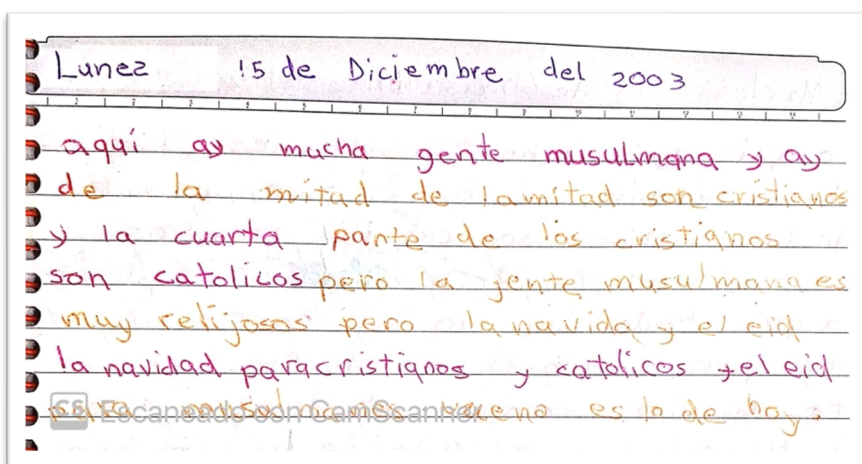 Lunez 15 de Diciembre del 2003
aquí ay mucha gente musulmana y ay
de la mitad de lamitad son cristianos
y la cuarta parte de los cristianos
son catolicos pero la jente musulmana es
muy relijosas pero la navida y el eid
la navidad para cristianos y catolicos y el eid
para musulmanes bueno es lo de hoy.
CS Escaneado con CamScanner